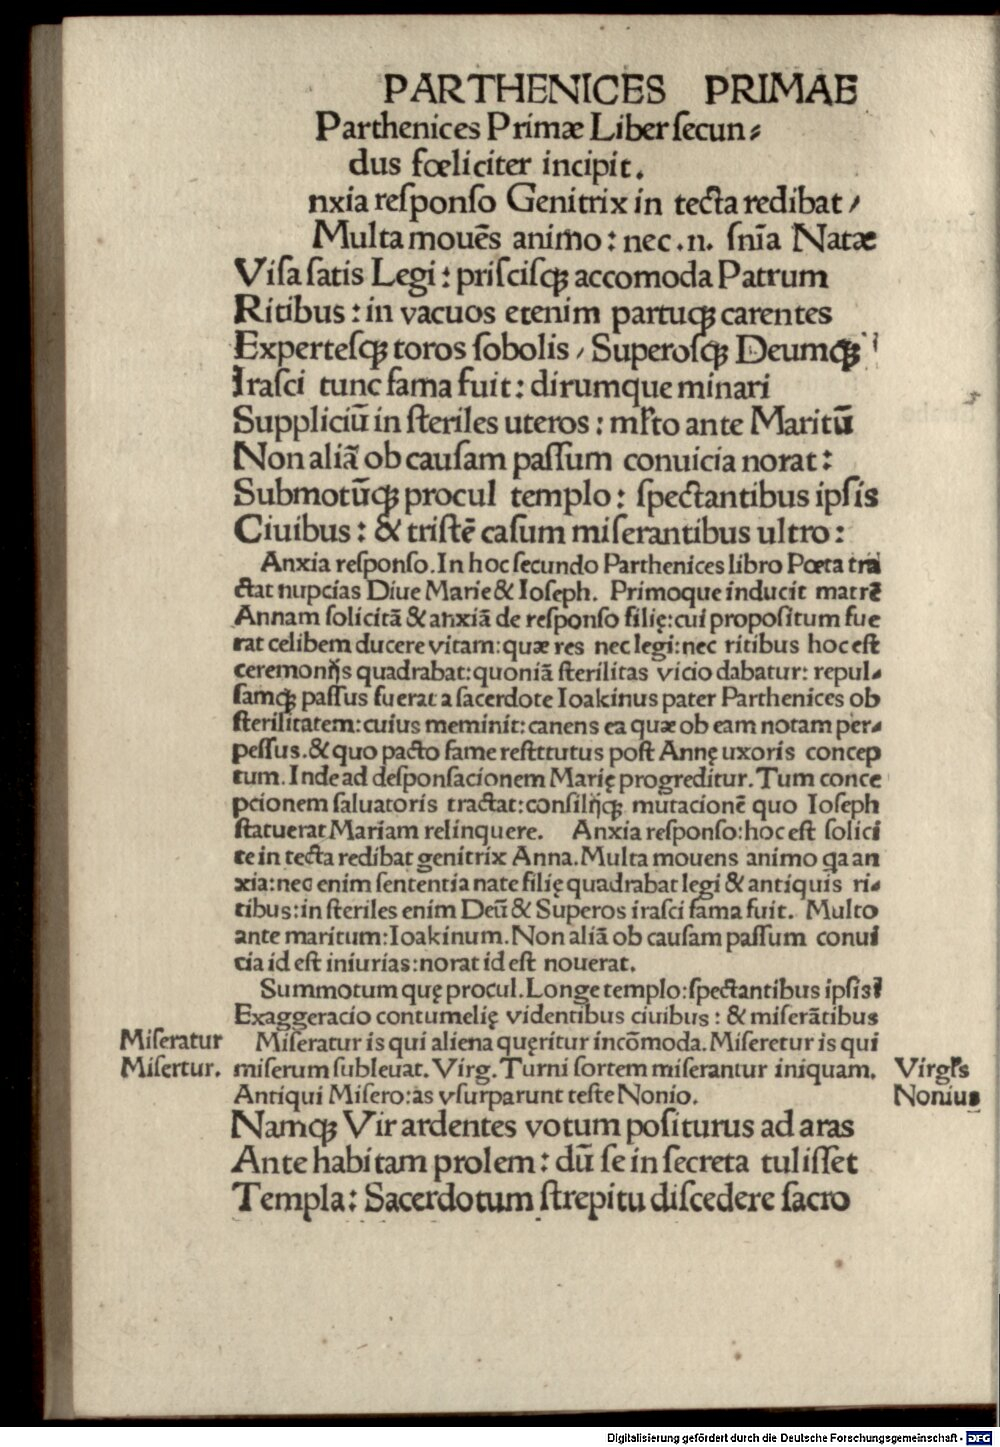 PARTHENICES PRIMAE
Parthenices Primæ Liber ſecun⸗
dus fœliciter incipit.
nxia reſponſo Genitrix in tecta redibat /
Multa mouēs animo : nec .n. ſnīa Natæ
Viſa ſatis Legi : priſciſqꝫ accomoda Patrum
Ritibus : in vacuos etenim partuqꝫ carentes
Experteſqꝫ toros ſobolis / Superoſqꝫ Deumqꝫ
Iraſci tunc fama fuit : dirumque minari
Suppliciū in ſteriles uteros : ml̓to ante Maritū
Non aliā ob cauſam paſſum conuicia norat :
Submotūqꝫ procul templo : ſpectantibus ipſis
Ciuibus : & triſtē caſum miſerantibus ultro :
Anxia reſponſo. In hoc ſecundo Parthenices libro Pœta tra
ctat nupcias Diue Marie & Ioſeph. Primoque inducit matrē
Annam ſolicitā & anxiā de reſponſo filię: cui propoſitum fue
rat celibem ducere vitam: quæ res nec legi: nec ritibus hoc eſt
ceremonijs quadrabat: quoniā ſterilitas vicio dabatur: repul⸗
ſamqꝫ paſſus fuerat a ſacerdote Ioakinus pater Parthenices ob
ſterilitatem: cuius meminit: canens ea quæ ob eam notam per⸗
peſſus. & quo pacto fame reſtttutus poſt Annę uxoris concep
tum. Inde ad deſponſacionem Marię progreditur. Tum conce
pcionem ſaluatoris tractat: conſilijqꝫ mutacionē quo Ioſeph
ſtatuerat Mariam relinquere. Anxia reſponſo: hoc eſt ſolici
te in tecta redibat genitrix Anna. Multa mouens animo qa an
xia: nec enim ſententia nate filię quadrabat legi & antiquis ri⸗
tibus: in ſteriles enim Deū & Superos iraſci fama fuit. Multo
ante maritum: Ioakinum. Non aliā ob cauſam paſſum conui
cia id eſt iniurias: norat id eſt nouerat.
Summotum quę procul. Longe templo: ſpectantibus ipſis:
Exaggeracio contumelię videntibus ciuibus : & miſerātibus
Miſeratur Miſeratur is qui aliena quęritur incōmoda. Miſeretur is qui
Miſertur. miſerum ſubleuat. Virg. Turni ſortem miſerantur iniquam. Virgl̓s
Antiqui Miſero: as vſurparunt teſte Nonio. Nonius
Namqꝫ Vir ardentes votum poſiturus ad aras
Ante habitam prolem : dū ſe in ſecreta tuliſſet
Templa : Sacerdotum ſtrepitu diſcedere ſacro
Digitalisierung gefördert durch die Deutsche Forschungsgemeinschaft - DFG